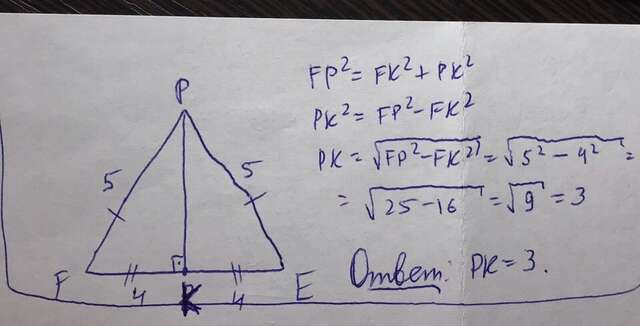 P
5
5
F
4
K
4
E
FP² = FK² + PK²
PK² = FP² − FK²
PK = √FP² − FK² = √5² − 4² =
= √25 − 16 = √9 = 3
Ответ: PK = 3.